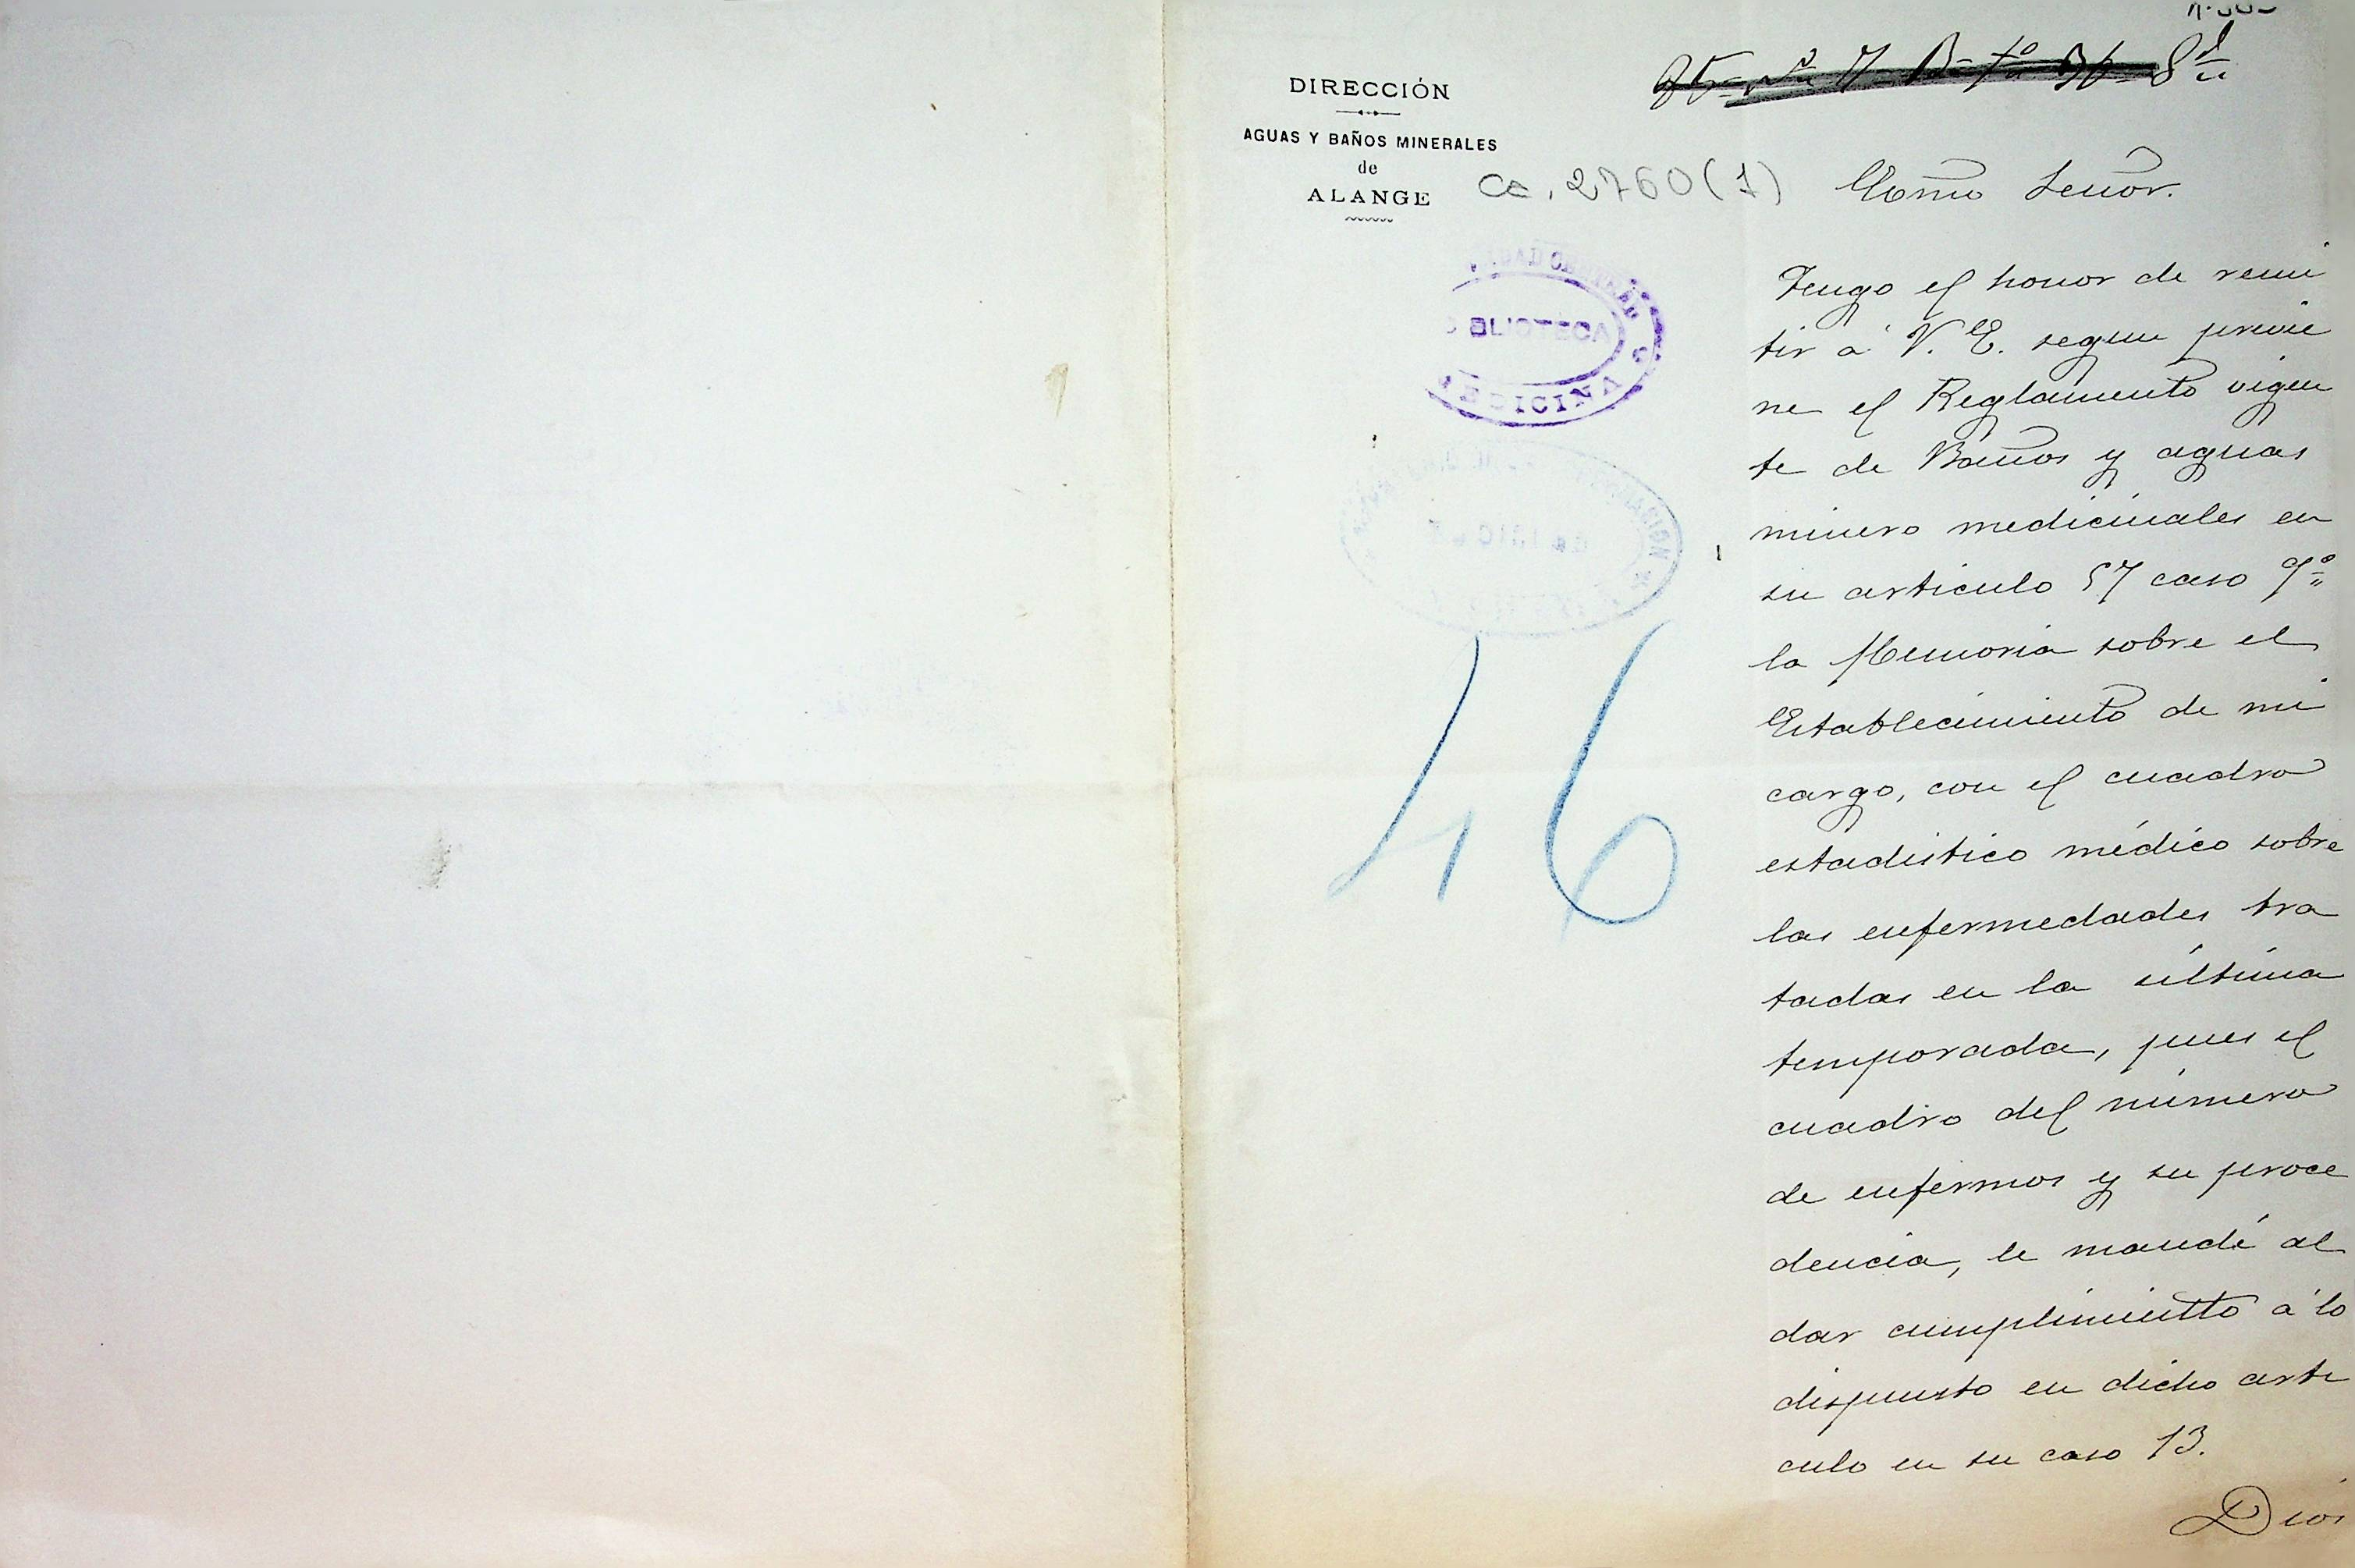 DIRECCIÓN
AGUAS Y BAÑOS MINERALES
de
ALANGE
Ca. 2760(1)
BLIOTECA
EDICINA
46
Exmo Señor.
Tengo el honor de remi
tir á V. E. segun previe
ne el Reglamento vigen
te de Baños y aguas
minero medicinales en
su artículo 57 caso 9º
la Memoria sobre el
Establecimiento de mi
cargo, con el cuadro
estadístico médico sobre
las enfermedades tra
tadas en la última
temporada, pues el
cuadro del número
de enfermos y su proce
dencia, le mandé al
dar cumplimiento á lo
dispuesto en dicho artí
culo en su caso 13.
Dios